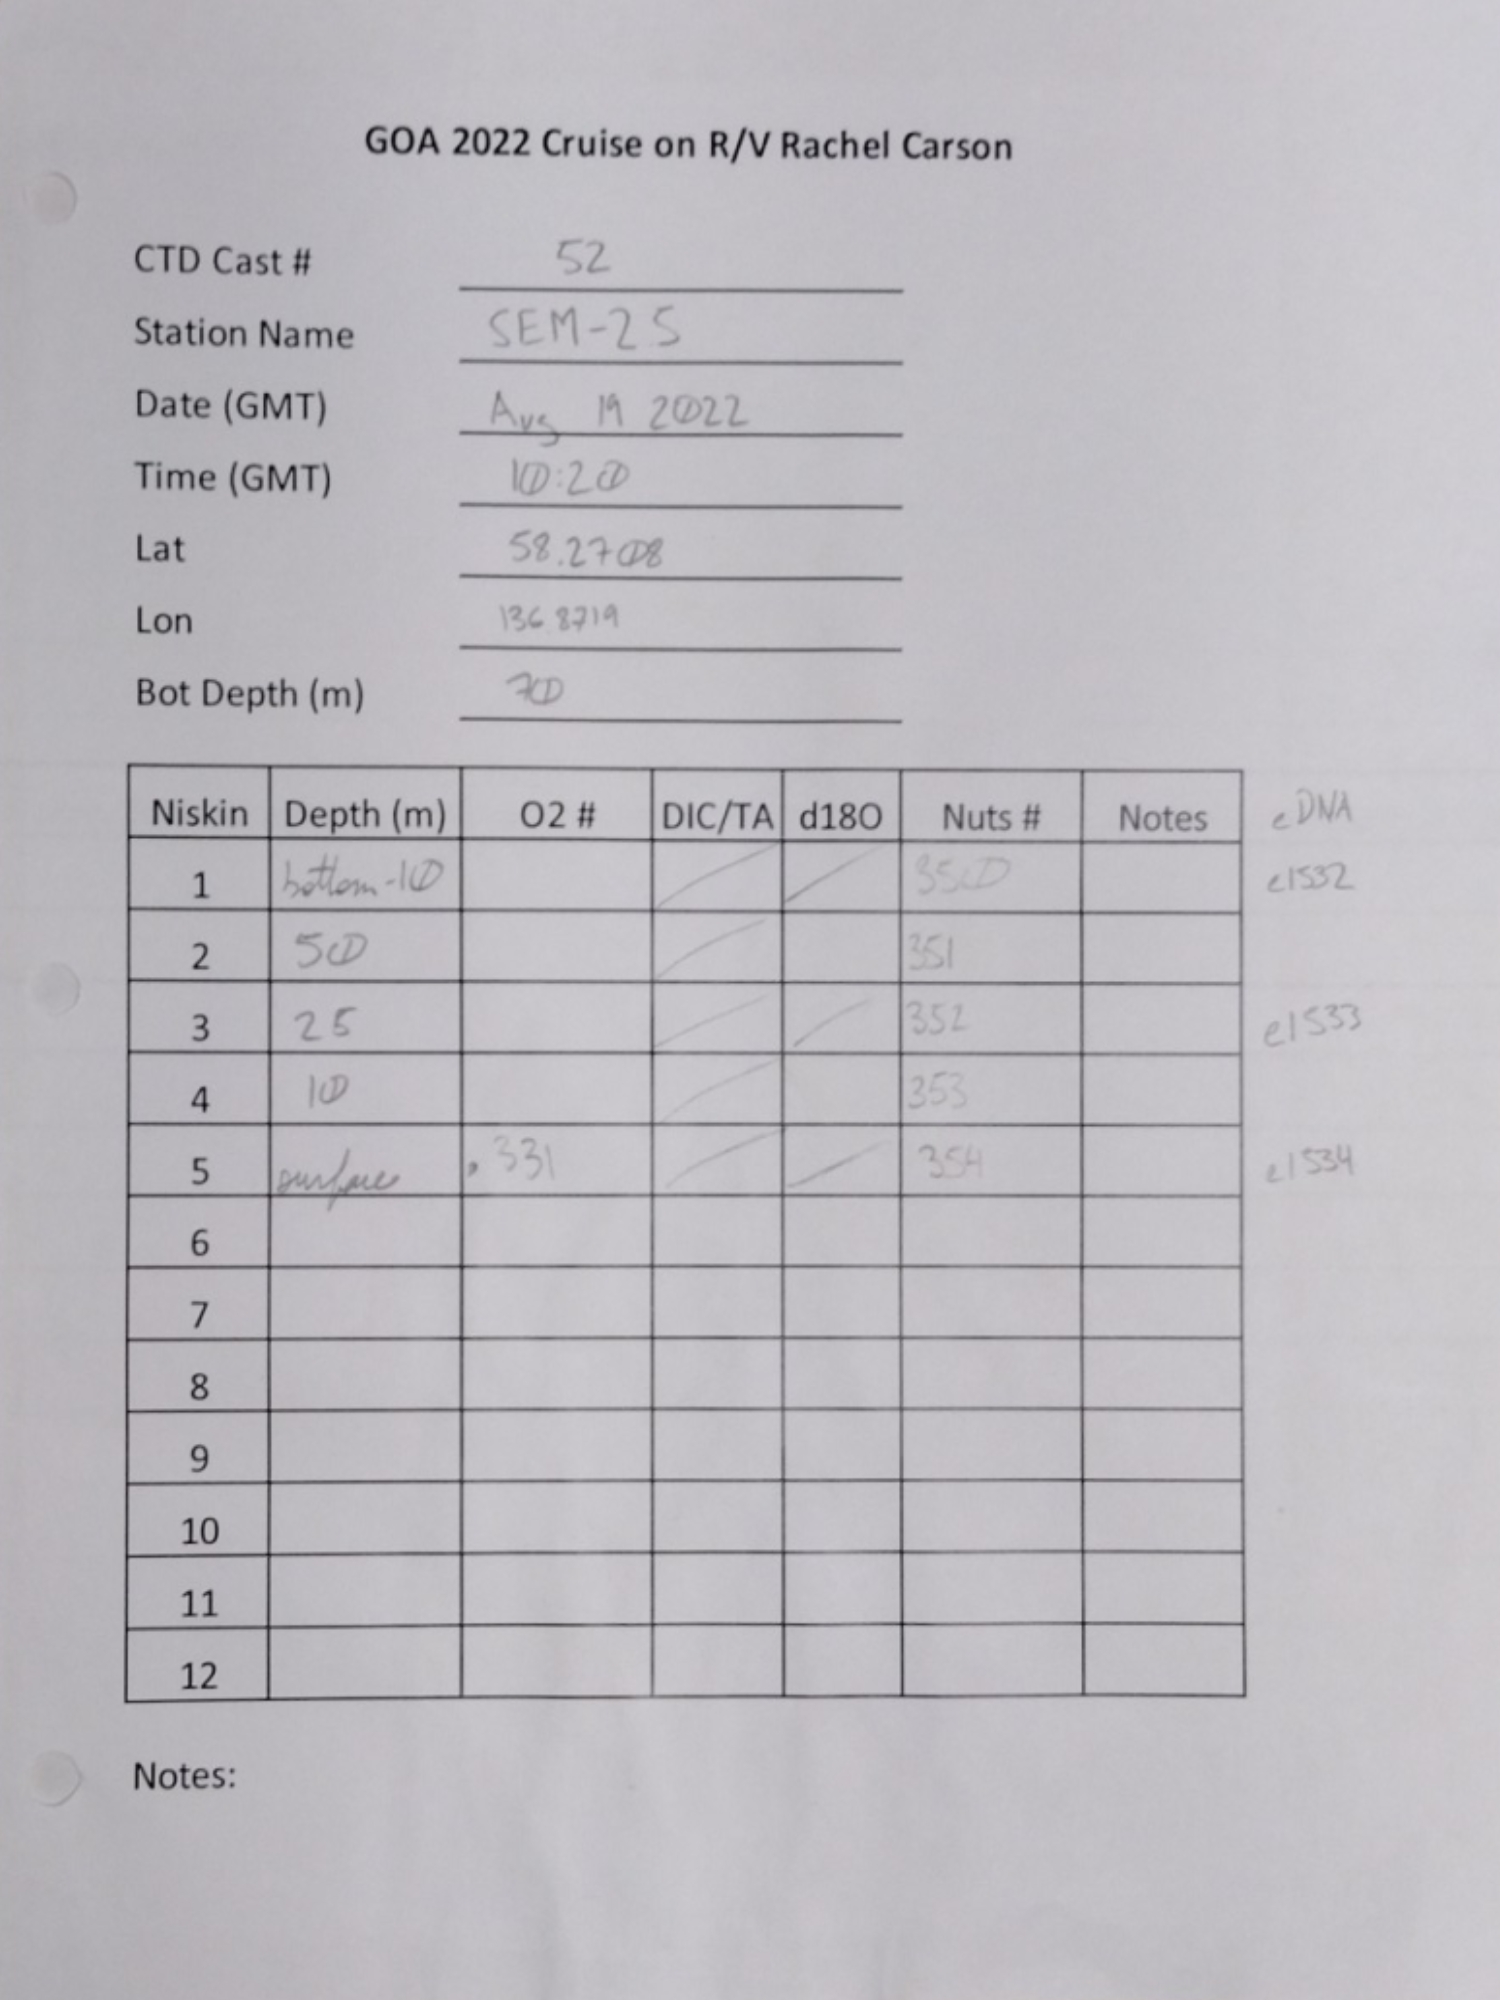 GOA 2022 Cruise on R/V Rachel Carson
CTD Cast # 52
Station Name SEM-25
Date (GMT) Aug 19 2022
Time (GMT) 10:20
Lat 58.2708
Lon 136.8719
Bot Depth (m) 70
Niskin Depth (m) O2 # DIC/TA d18O Nuts # Notes eDNA
1 bottom-10 / / 350 e1532
2 50 / 351
3 25 / / 352 e1533
4 10 / 353
5 surface . 331 / / 354 e1534
6
7
8
9
10
11
12
Notes: